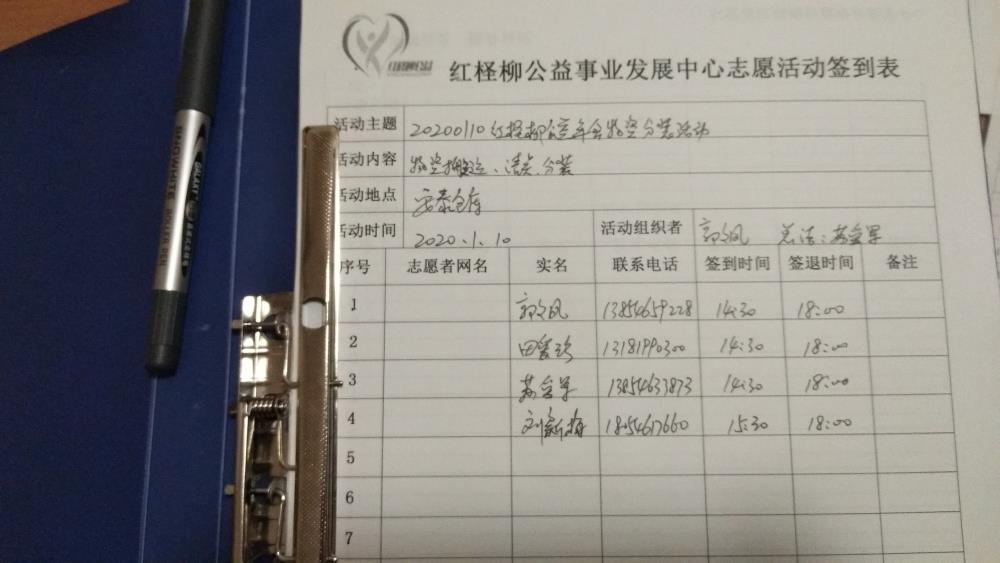 红柽柳公益事业发展中心志愿活动签到表
活动主题 20200110红柽柳公益年会物资分装活动
活动内容 物资搬运、清点、分装
活动地点 安泰仓库
活动时间 2020.1.10 活动组织者 郭文凤 总结:苏金军
序号 志愿者网名 实名 联系电话 签到时间 签退时间 备注
1 郭文凤 13854659228 14:30 18:00
2 田 13181990300 14:30 18:00
3 苏金军 13854633873 14:30 18:00
4 刘新梅 1854617660 15:30 18:00
5
6
7
SNOWHITE